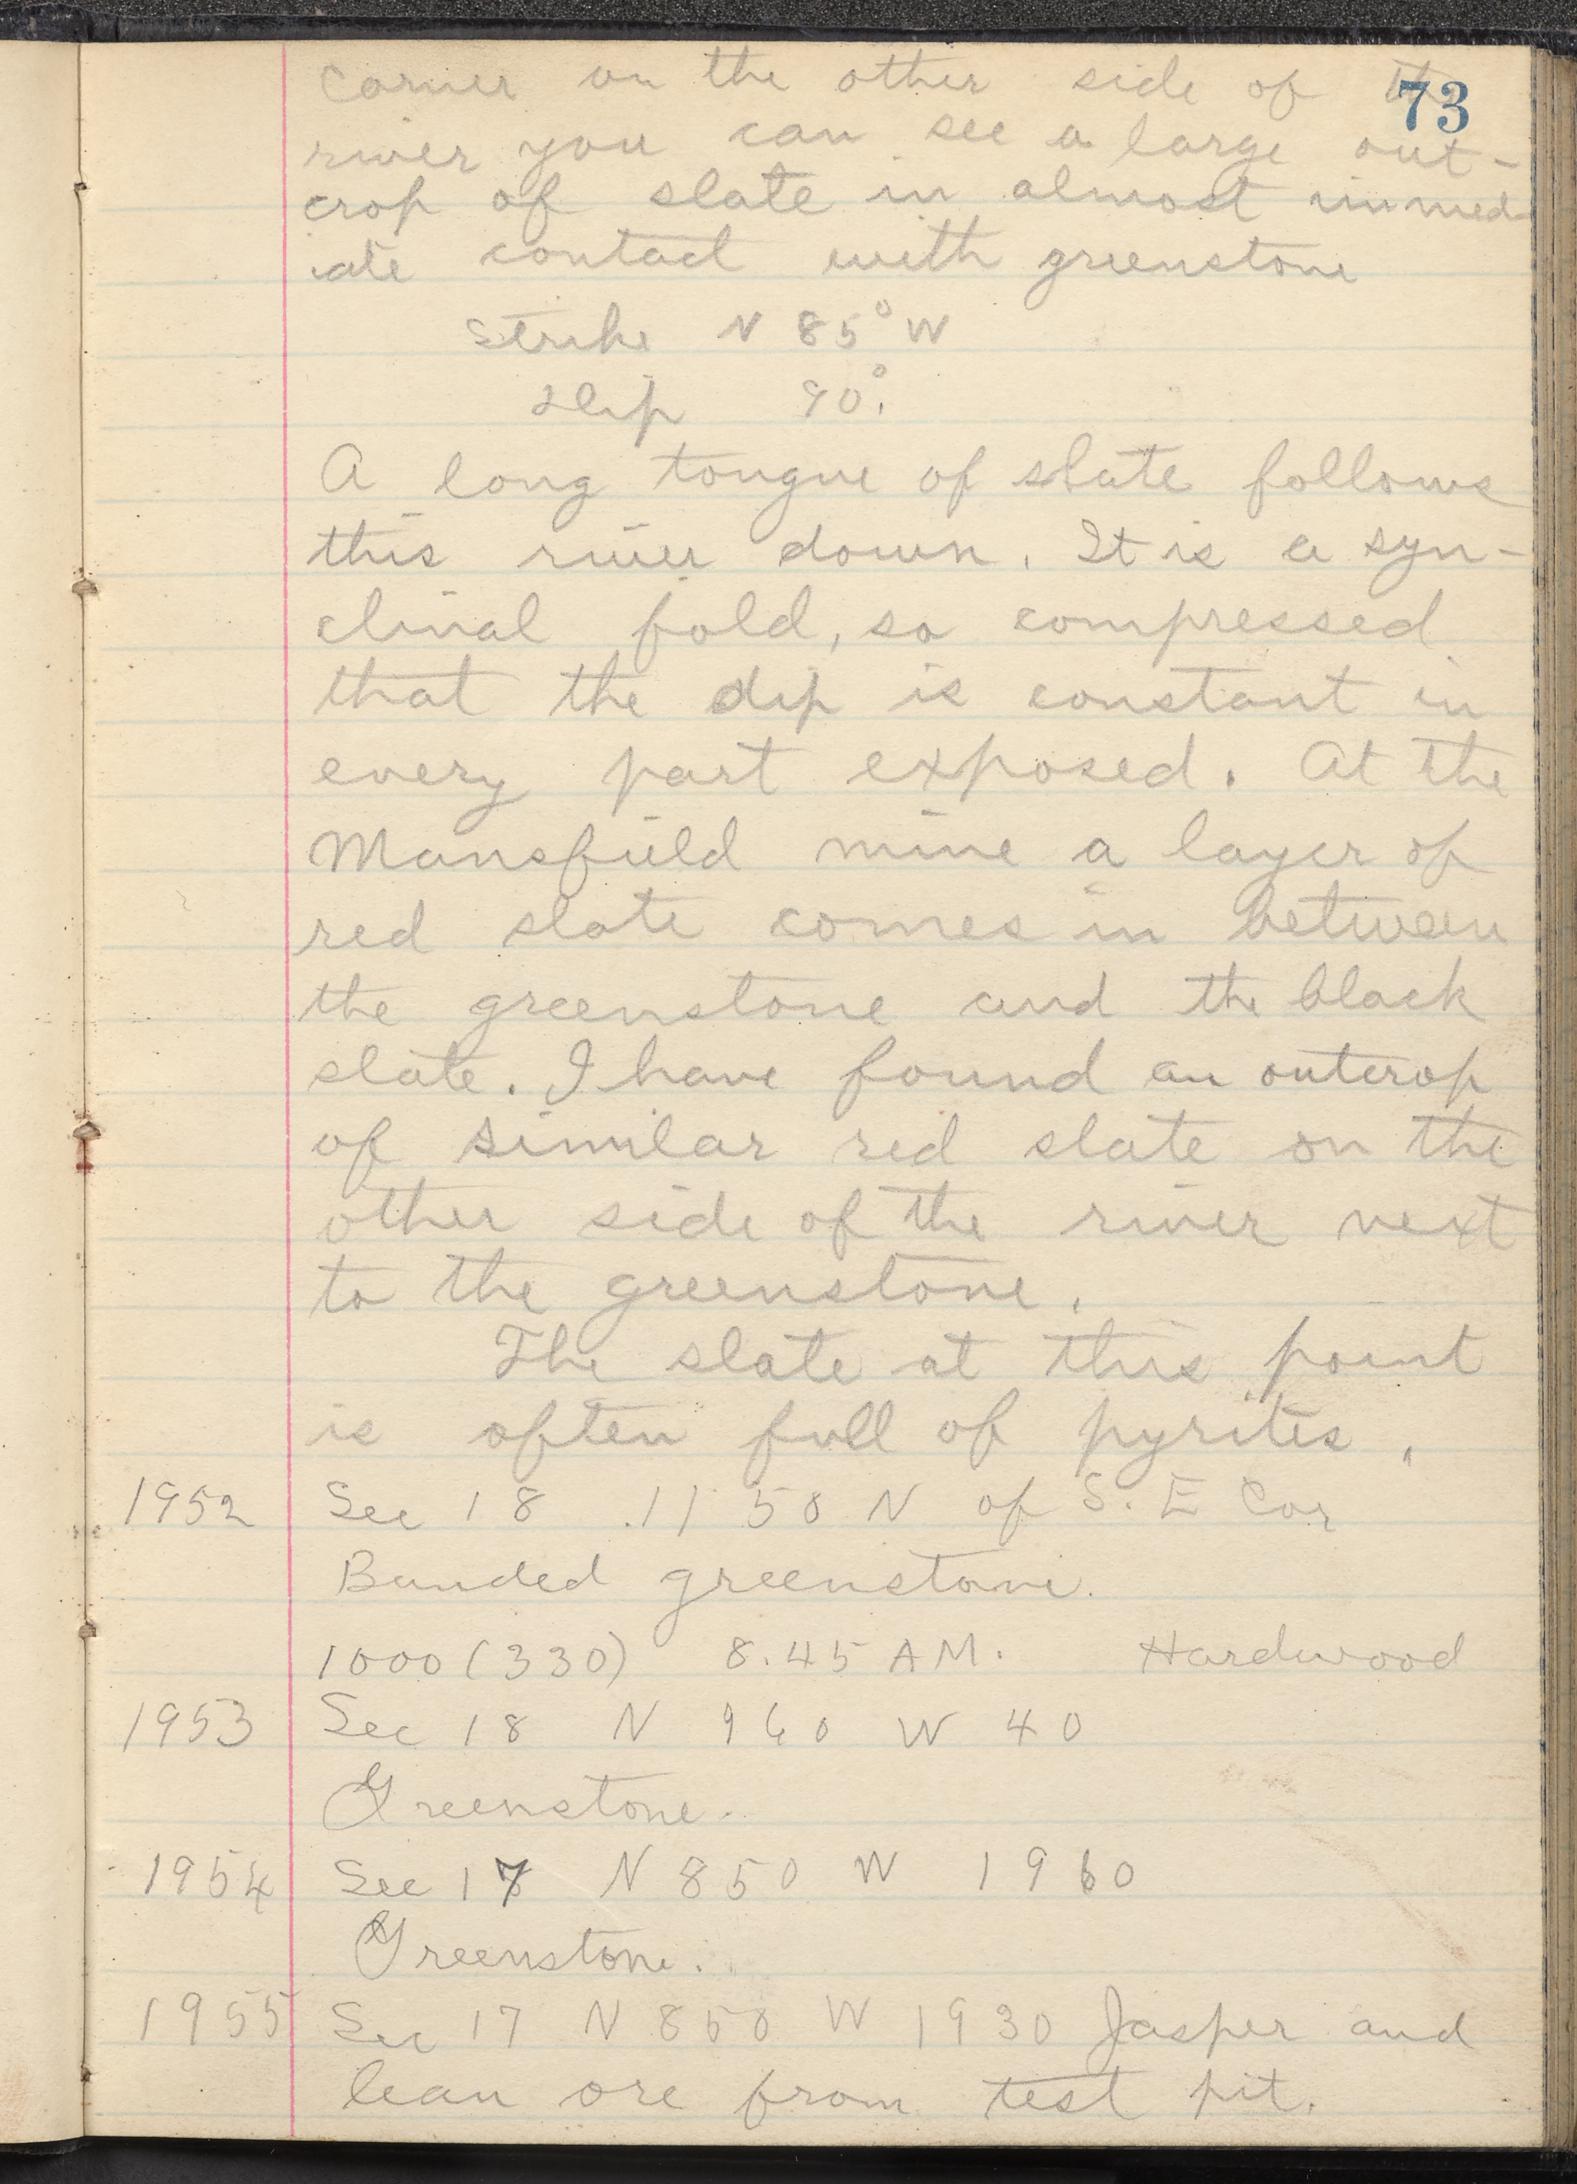 73
corner on the other side of the
river you can see a large out-
crop of slate in almost immed-
iate contact with greenstone
Strike N 85° W
Dip 90°.
A long tongue of slate follows
this river down. It is a syn-
clinal fold, so compressed
that the dip is constant in
every part exposed. At the
Mansfield mine a layer of
red slate comes in between
the greenstone and the black
slate. I have found an outcrop
of similar red slate on the
other side of the river next
to the greenstone.
The slate at this point
is often full of pyrites.
1952 Sec 18 1150 N of S. E Cor
Banded greenstone.
1000 (330) 8.45 AM. Hardwood
1953 Sec 18 N 960 W 40
Greenstone.
1954 Sec 17 N 850 W 1960
Greenstone.
1955 Sec 17 N 850 W 1930 Jasper and
lean ore from test pit.